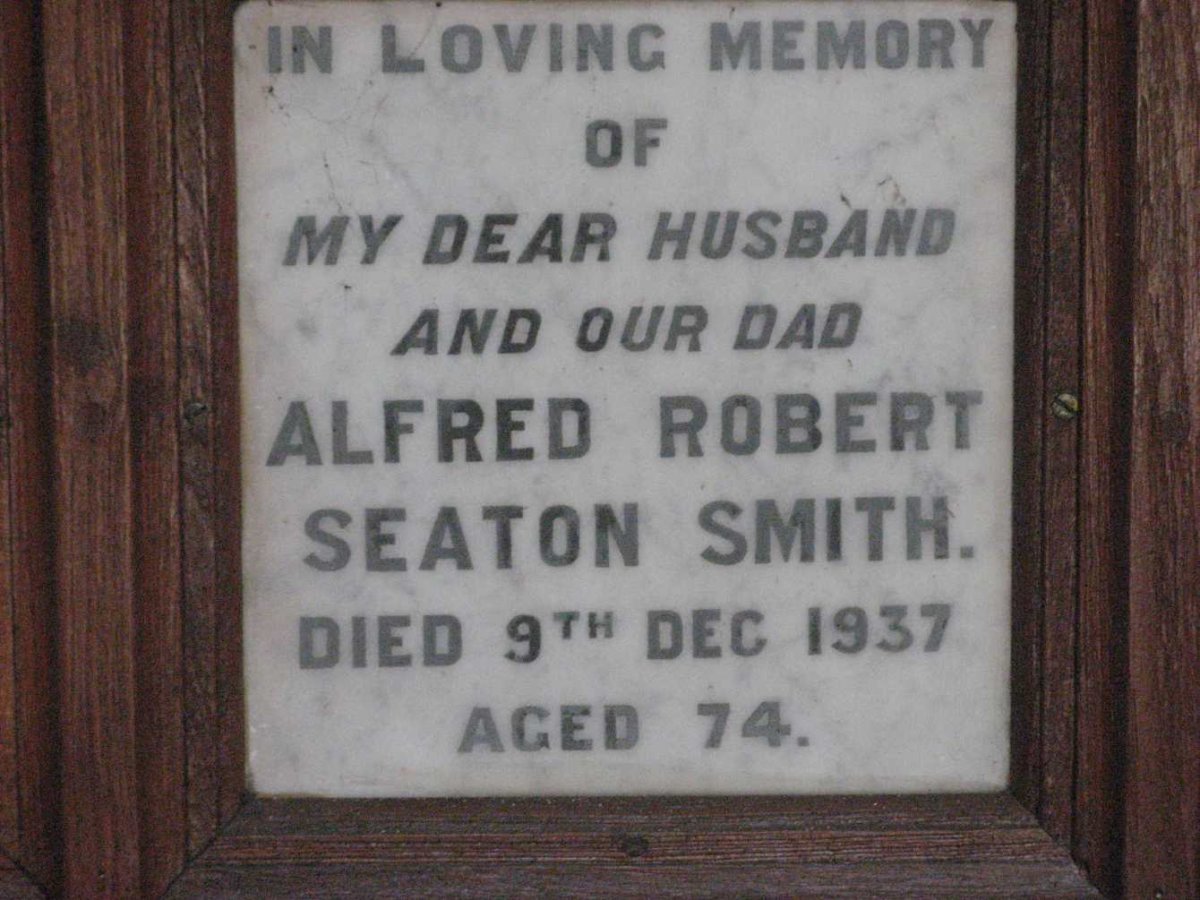 IN LOVING MEMORY
OF
MY DEAR HUSBAND
AND OUR DAD
ALFRED ROBERT
SEATON SMITH.
DIED 9TH DEC 1937
AGED 74.